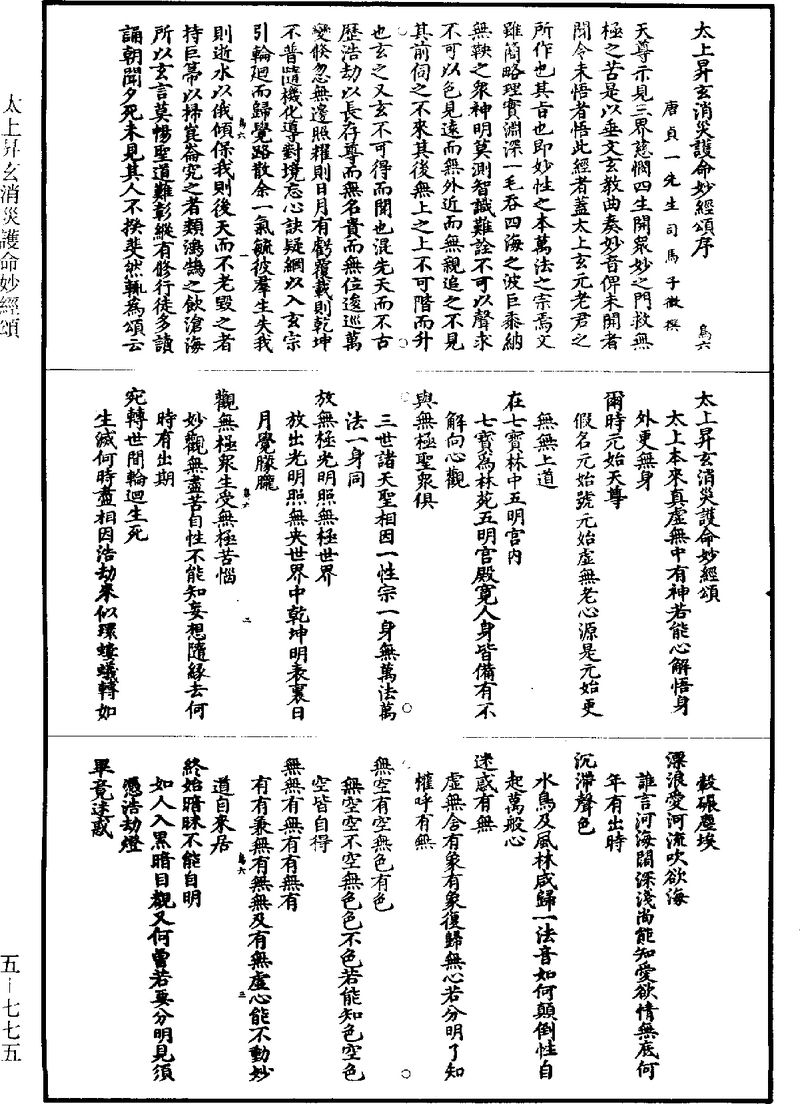 太上昇玄消災護命妙經頌序
鳥六
唐貞一先生司馬子微撰
天尊示見三界慈憫四生開衆妙之門救無
極之苦是以垂文玄教曲奏妙音俾未開者
聞令未悟者悟此經者蓋太上玄元老君之
所作也其旨也即妙性之本萬法之宗焉文
雖簡略理實淵深一毛吞四海之波巨黍納
無鞅之衆神明莫測智識難詮不可以聲求
不可以色見遠而無外近而無親追之不見
其前伺之不來其後無上之上不可階而升
也玄之又玄不可得而聞也混先天而不古
歷浩劫以長存尊而無名貴而無位逡巡萬
變倏忽無邊照耀則日月有虧覆載則乾坤
不普隨機化導對境忘心訣疑網以入玄宗
引輪迴而歸覺路散余一氣毓彼羣生失我
鳥六
一
則逝水以俄傾保我則後天而不老毀之者
持巨箒以掃崑崙究之者類鴻鵠之飲滄海
所以玄言莫暢聖道難彰縱有修行徒多讀
誦朝聞夕死未見其人不揆斐然輒爲頌云
太上昇玄消災護命妙經頌
太上本來真虛無中有神若能心解悟身
外更無身
爾時元始天尊
假名元始號元始虛無老心源是元始更
無無上道
在七寶林中五明宮內
七寶爲林苑五明宮殿寬人身皆備有不
解向心觀
與無極聖衆俱
三世諸天聖相因一性宗一身無萬法萬
法一身同
放無極光明照無極世界
放出光明照無央世界中乾坤明表裏日
月覺朦朧
鳥六
二
觀無極衆生受無極苦惱
妙觀無盡苦自性不能知妄想隨緣去何
時有出期
宛轉世間輪迴生死
生滅何時盡相因浩劫來似環螻蟻轉如
轂碾塵埃
漂浪愛河流吹欲海
誰言河海闊深淺尚能知愛欲情無底何
年有出時
沉滯聲色
水鳥及風林咸歸一法音如何顛倒性自
起萬般心
迷惑有無
虛無含有象有象復歸無心若分明了知
嶊呼有無
無空有空無色有色
無空空不空無色色不色若能知色空色
空皆自得
無無有無有有無有
有有兼無有無無及有無虛心能不動妙
道自來居
鳥六
三
終始暗昧不能自明
如人入黑暗目觀又何曾若要分明見須
憑浩劫燈
畢竟迷惑
太上昇玄消災護命妙經頌
五－七七五